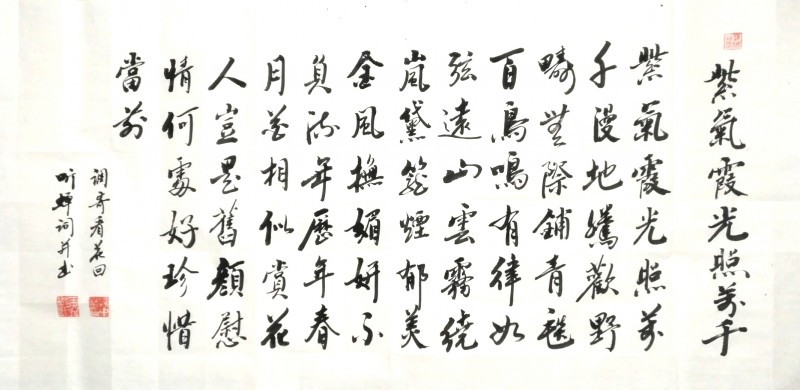 紫氣霞光照萬千
紫氣霞光照萬
千漫地騰歡野
疇無際鋪青毯
百鳥鳴有律如
弦遠山雲霧繞
嵐黛籠煙郁美
金風撫媚妍不
負流年歷年春
月花相似賞花
人豈是舊顏慰
情何處好珍惜
當前
調寄看花回
听蟬詞并书